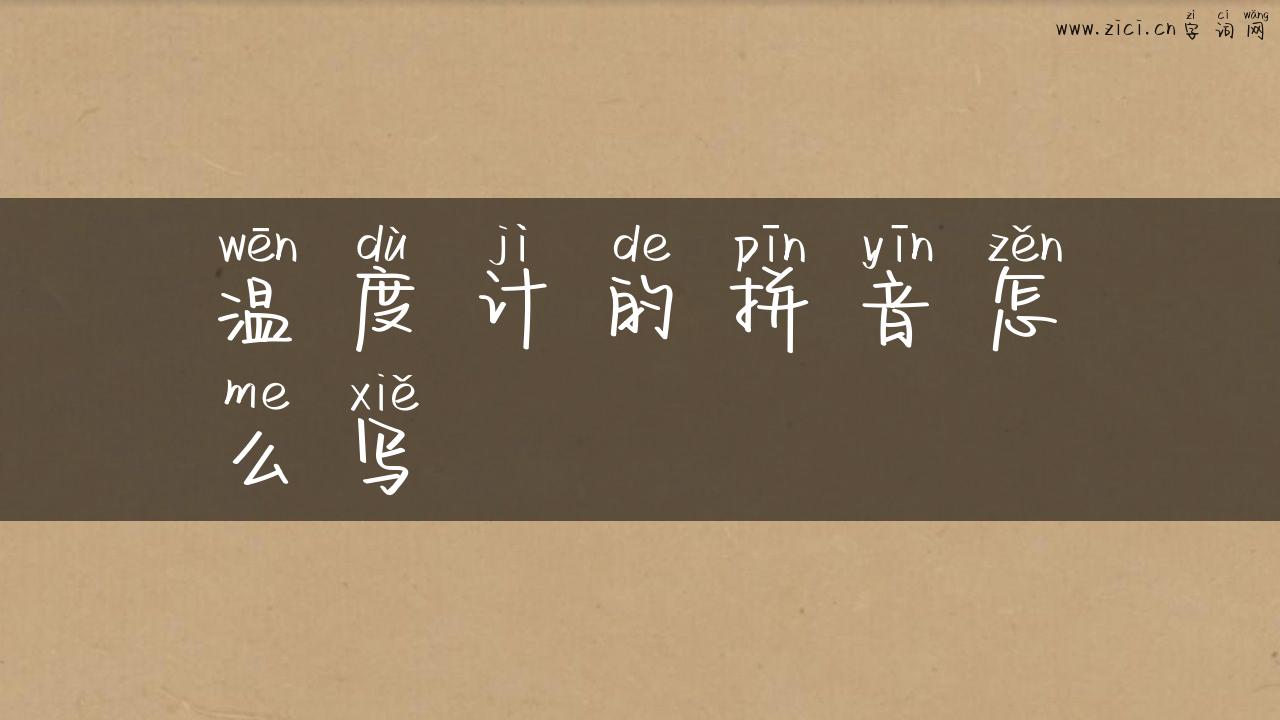 zì cí wǎng
www.zici.cn 字词网
wēn dù jì de pīn yīn zěn
温度计的拼音怎
me xiě
么写